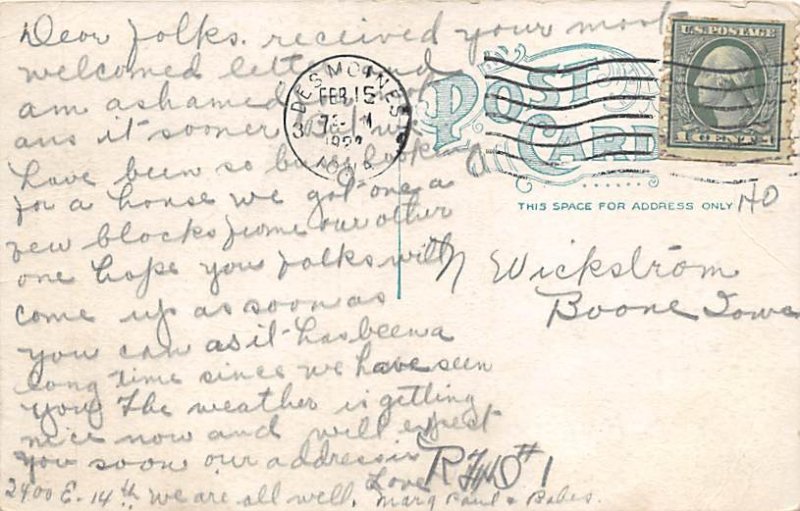 Dear folks. received your most
welcomed letter and
am ashamed
ans it sooner but we
have been so busy looking
for a house we got one a
few blocks frome our other
one hope you folks will
come up as soon as
you can as it has been a
long time since we have seen
you. The weather is getting
nice now and will expect
you soon our address is
2400 E. 14th we are all well. Love
Marg Paul & Babes.
DES MOINES
FEB 15
IOWA
POST CARD
U.S. POSTAGE
1 CENT 1
THIS SPACE FOR ADDRESS ONLY
N Wickstrom
Boone Iowa
#1